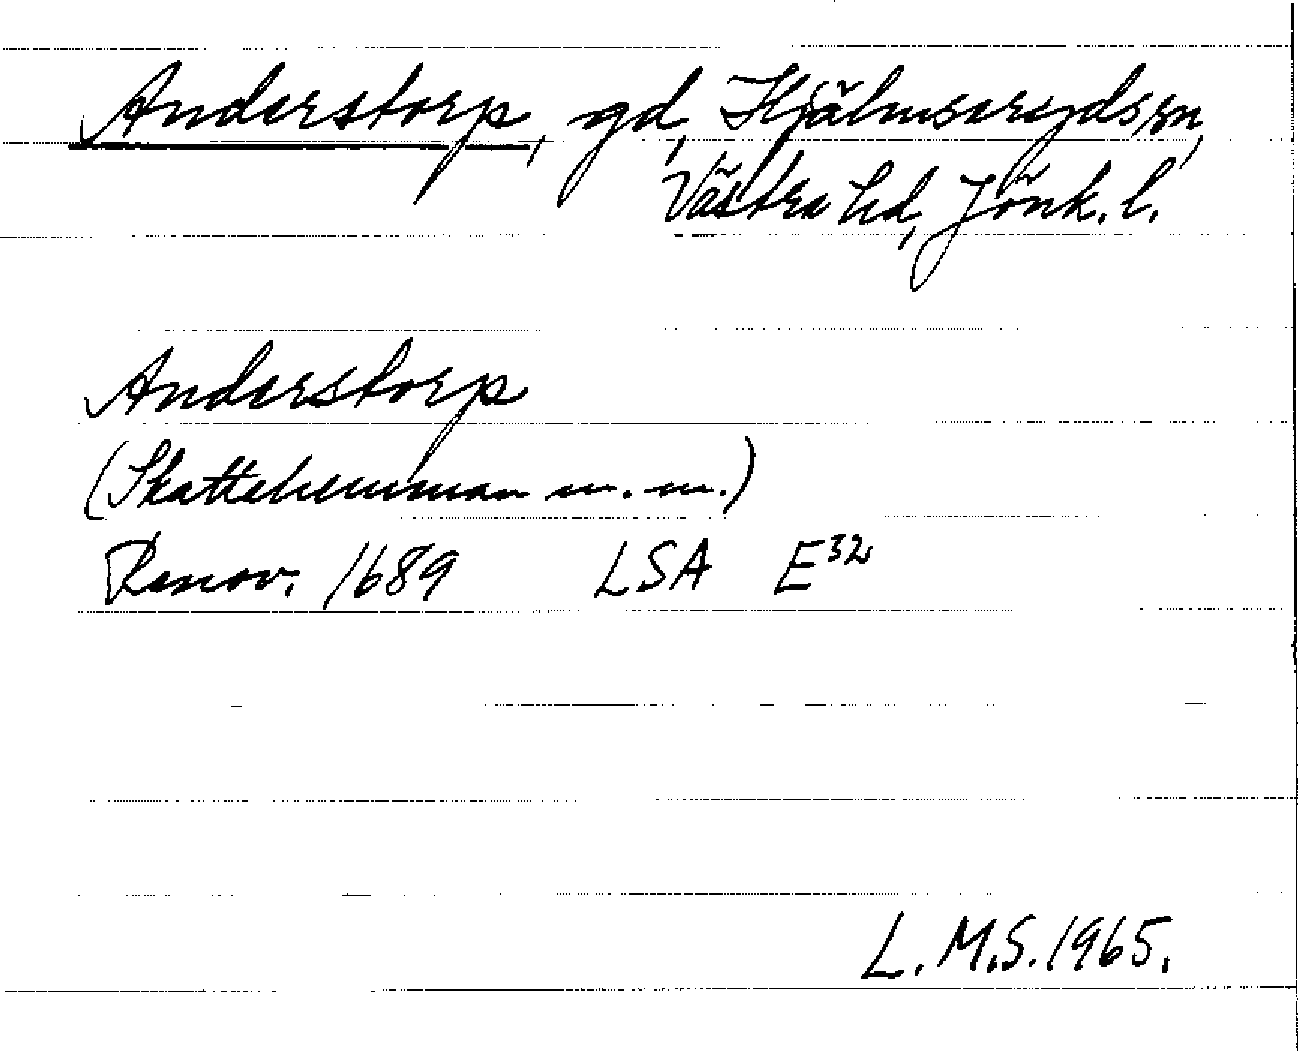 Anderstorp, gd, Hjälmseryds sn,
Västra hd, Jönk. l.
Anderstorp
(Skattehemman m. m.)
Renov. 1689 LSA E³²
L. M.S. 1965.